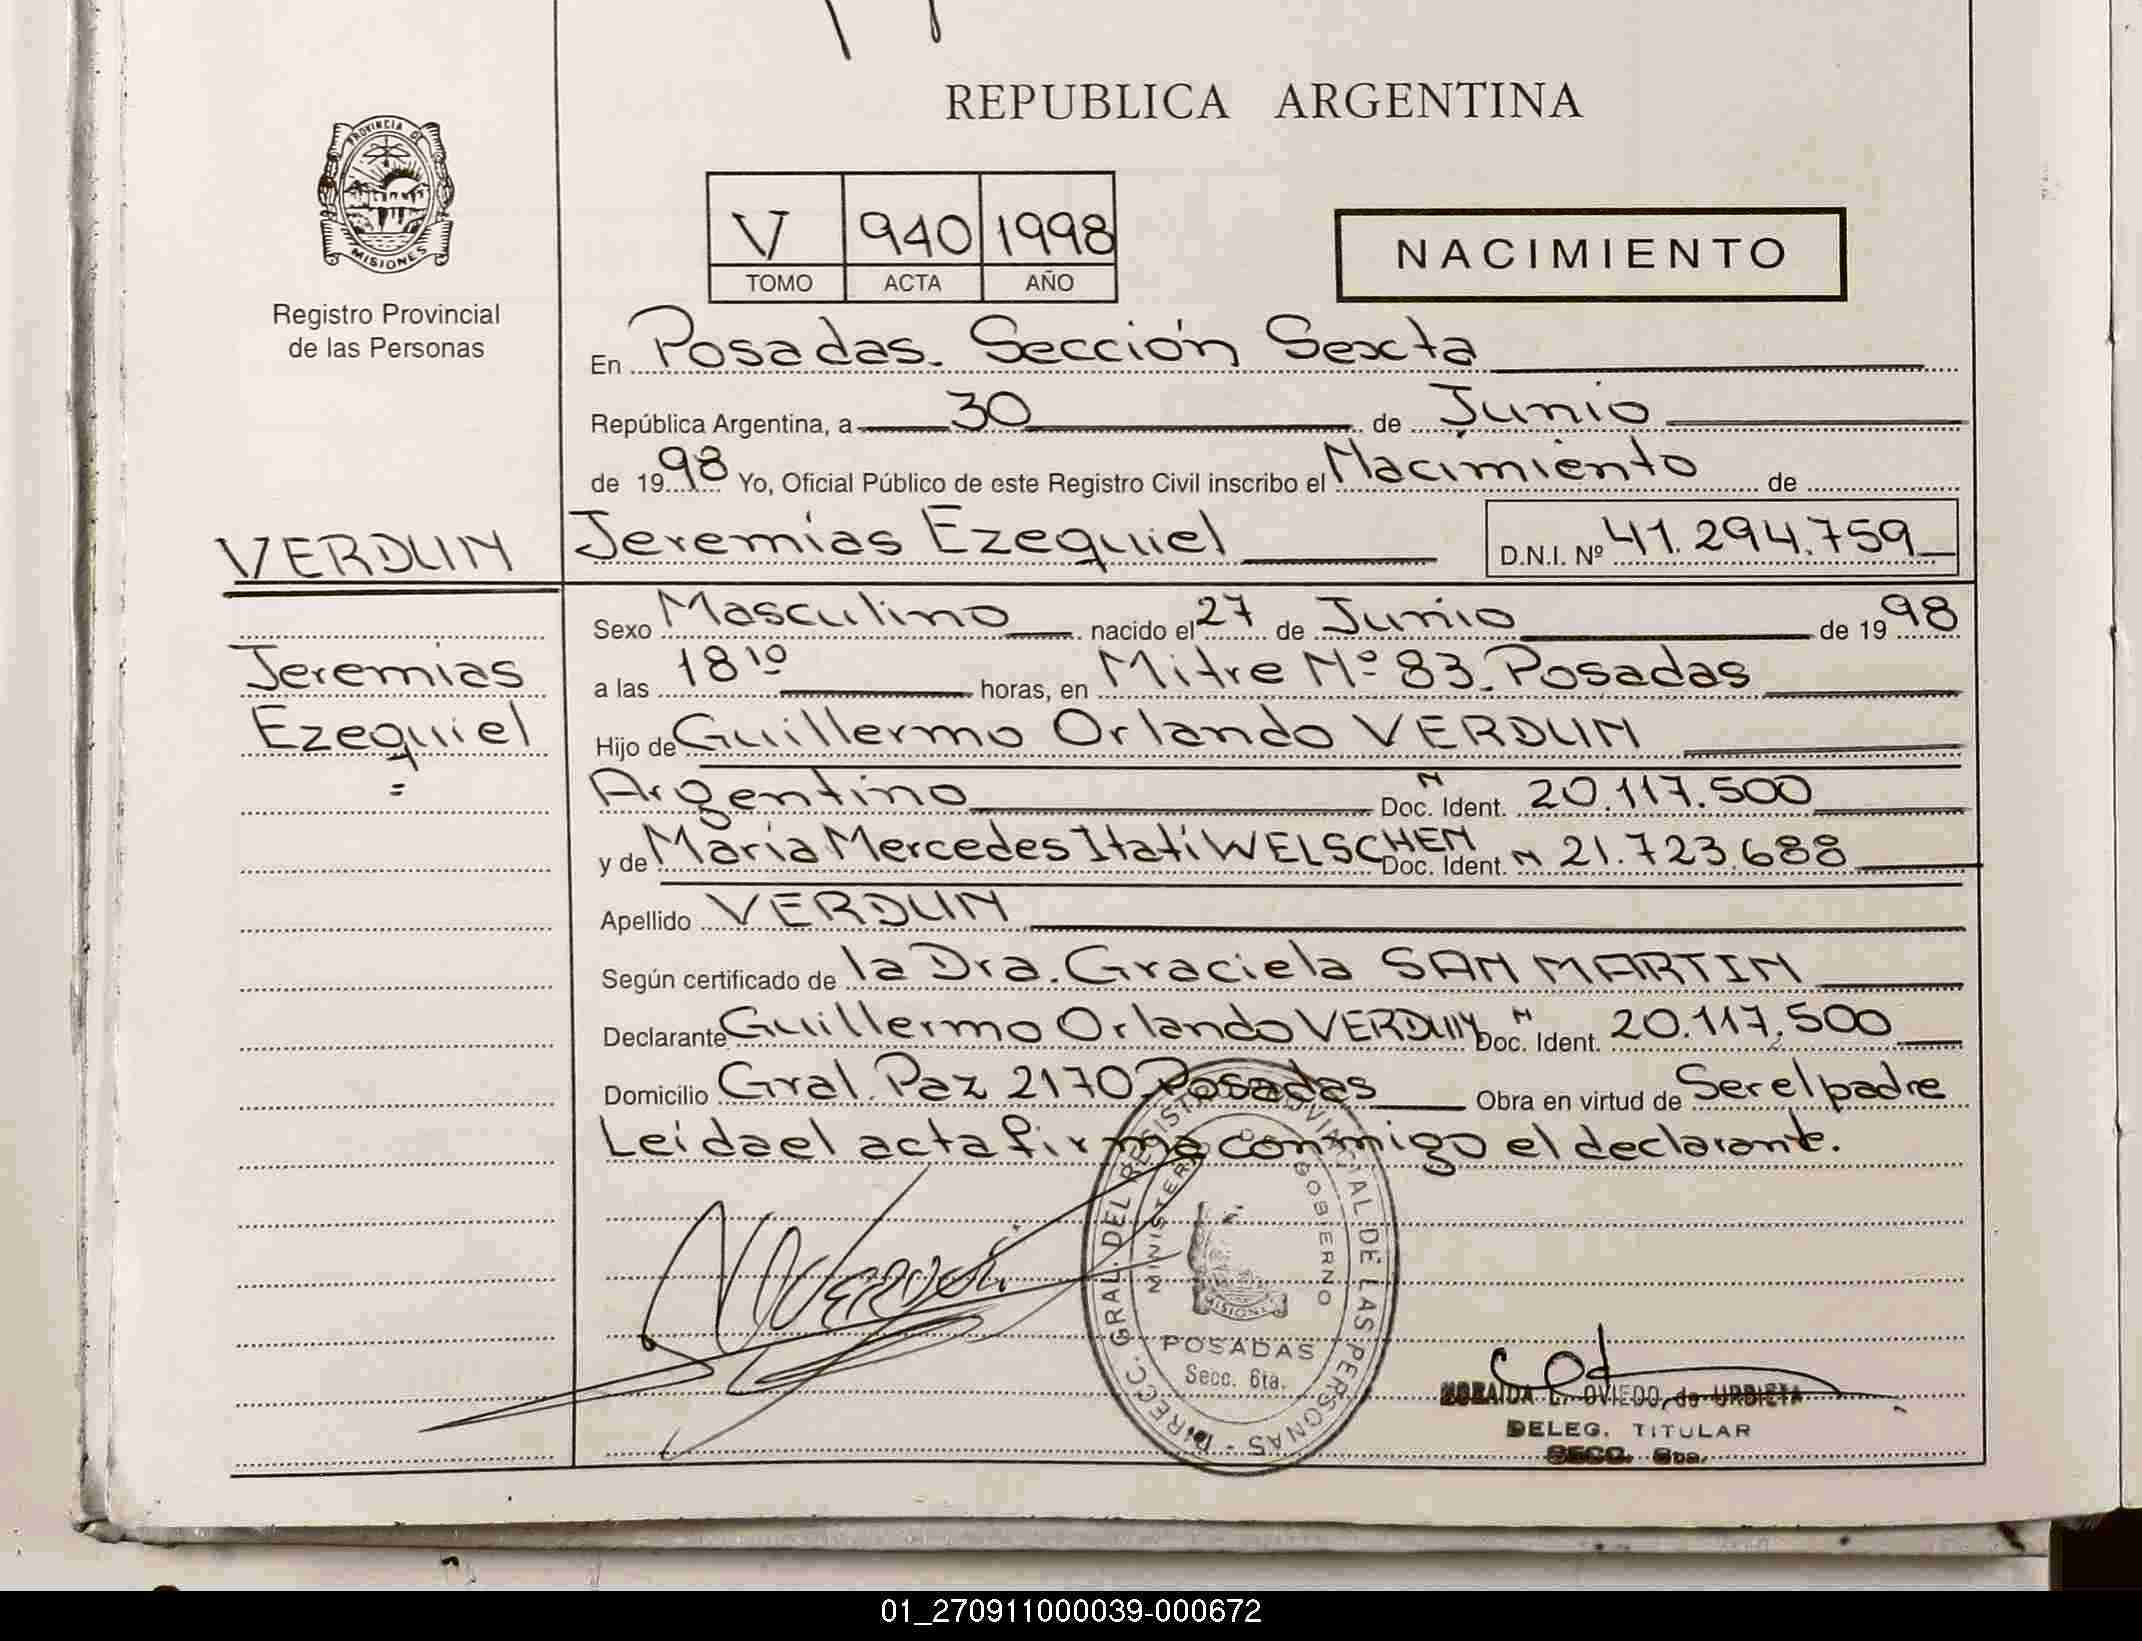 REPUBLICA ARGENTINA
PROVINCIA DE
MISIONES
Registro Provincial
de las Personas
V 940 1998
TOMO ACTA AÑO
NACIMIENTO
En Posadas. Sección Sexta
República Argentina, a 30 de Junio
de 1998 Yo, Oficial Público de este Registro Civil inscribo el Nacimiento de
VERDUN Jeremías Ezequiel D.N.I. Nº 41.294.759
Sexo Masculino nacido el 27 de Junio de 1998
Jeremías a las 18¹⁰ horas, en Mitre Nº 83. Posadas
Ezequiel Hijo de Guillermo Orlando VERDUN
= Argentino Doc. Ident. N 20.117.500
y de María Mercedes Itatí WELSCHEN Doc. Ident. N 21.723.688
Apellido VERDUN
Según certificado de la Dra. Graciela SAN MARTIN
Declarante Guillermo Orlando VERDUN Doc. Ident. N 20.117.500
Domicilio Gral. Paz 2170 Posadas Obra en virtud de Ser el padre
Leída el acta firma conmigo el declarante.
DIRECC. GRAL. DEL REGISTRO PROVINCIAL DE LAS PERSONAS
MINISTERIO DE GOBIERNO
MISIONES
POSADAS
Secc. 6ta.
VERDUN
L. OVIEDO de URBIETA
DELEG. TITULAR
SECC. 6ta.
01_270911000039-000672